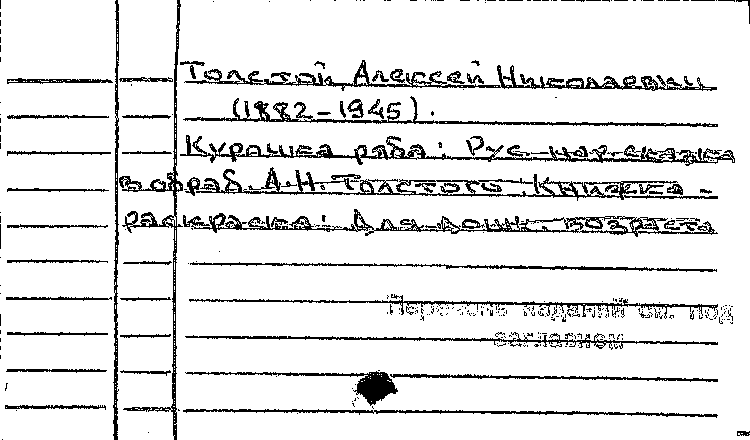 Толстой, Алексей Николаевич
(1882-1945).
Курочка ряба: Рус. нар. сказка
в обраб. А.Н. Толстого. Книжка-
раскраска: Для дошк. возраста
Перечень изданий см. под
заглавием